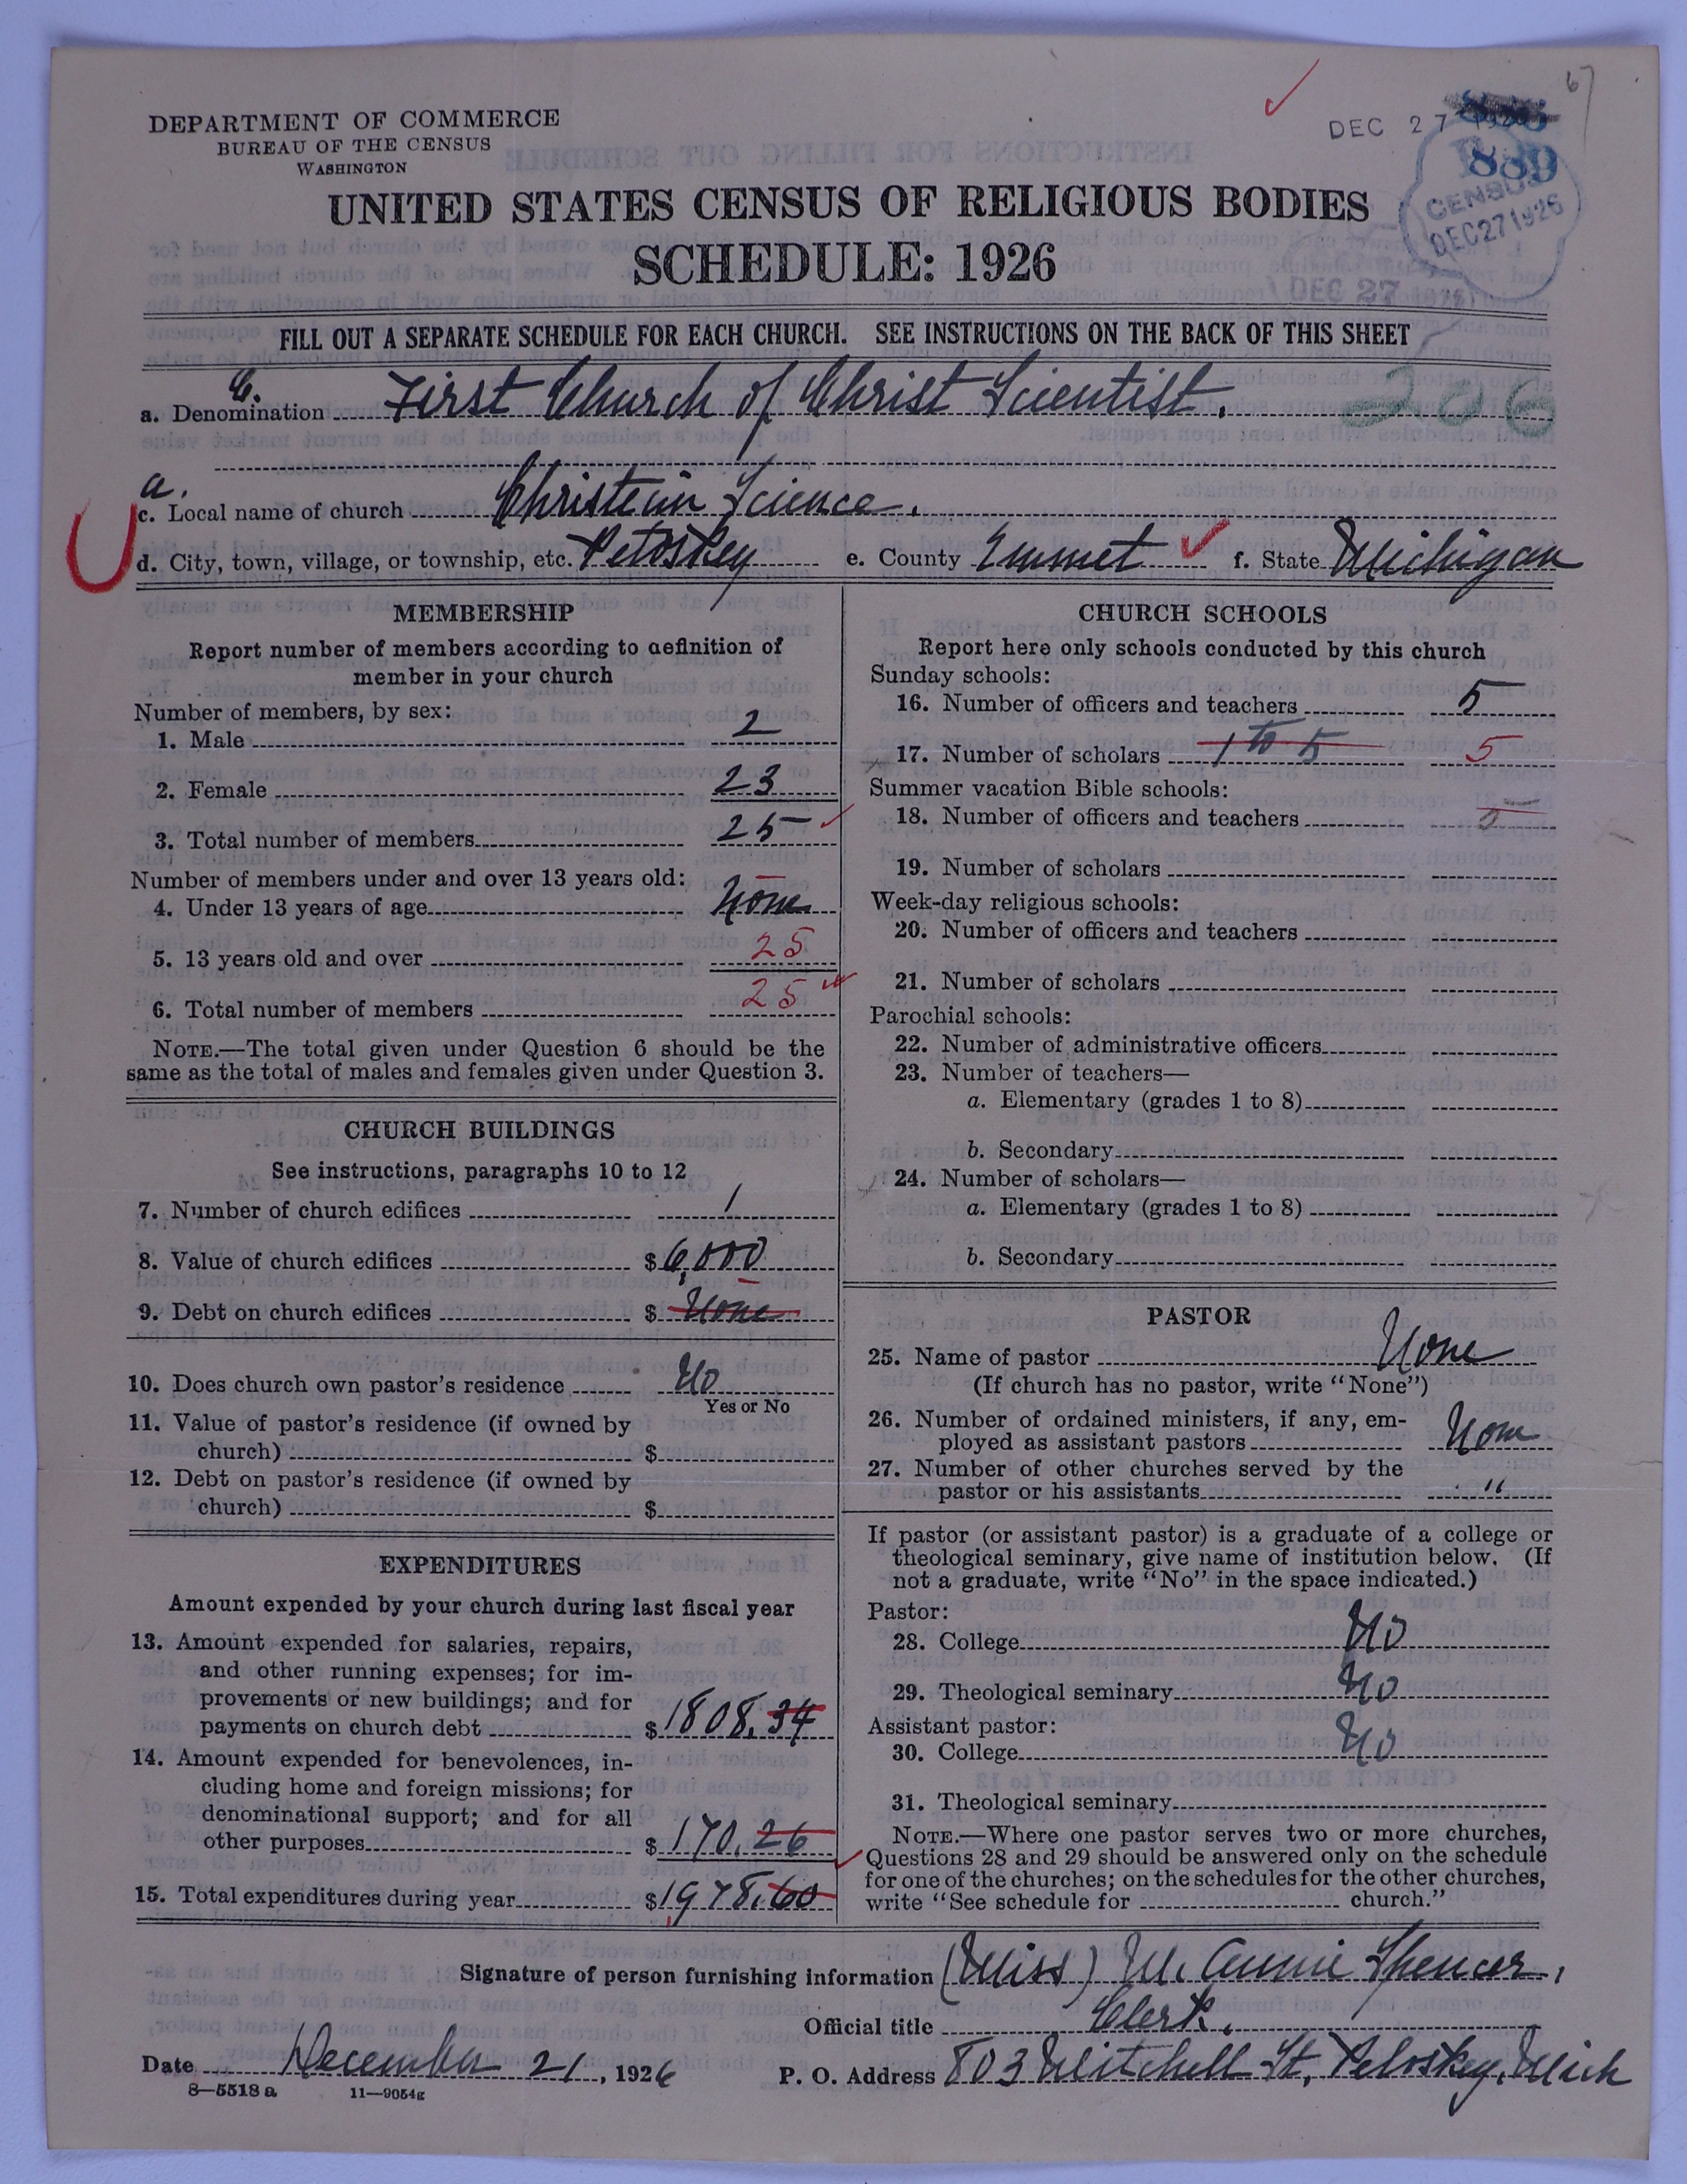 67
DEPARTMENT OF COMMERCE
BUREAU OF THE CENSUS
WASHINGTON
DEC 27
889
CENSUS
DEC 27 1926
DEC 27 1926
UNITED STATES CENSUS OF RELIGIOUS BODIES
SCHEDULE: 1926
FILL OUT A SEPARATE SCHEDULE FOR EACH CHURCH. SEE INSTRUCTIONS ON THE BACK OF THIS SHEET
c.
a. Denomination First Church of Christ Scientist. 206
a.
c. Local name of church Christain Science.
d. City, town, village, or township, etc. Petoskey e. County Emmet f. State Michigan
MEMBERSHIP
Report number of members according to definition of
member in your church
Number of members, by sex:
1. Male 2
2. Female 23
3. Total number of members 25
Number of members under and over 13 years old:
4. Under 13 years of age None
5. 13 years old and over 25
6. Total number of members 25
NOTE.—The total given under Question 6 should be the
same as the total of males and females given under Question 3.
CHURCH BUILDINGS
See instructions, paragraphs 10 to 12
7. Number of church edifices 1
8. Value of church edifices $6,000
9. Debt on church edifices $ None
10. Does church own pastor's residence No
Yes or No
11. Value of pastor's residence (if owned by
church) $
12. Debt on pastor's residence (if owned by
church) $
EXPENDITURES
Amount expended by your church during last fiscal year
13. Amount expended for salaries, repairs,
and other running expenses; for im-
provements or new buildings; and for
payments on church debt $1808.34
14. Amount expended for benevolences, in-
cluding home and foreign missions; for
denominational support; and for all
other purposes $170.26
15. Total expenditures during year $1978.60
CHURCH SCHOOLS
Report here only schools conducted by this church
Sunday schools:
16. Number of officers and teachers 5
17. Number of scholars 1 to 5 5
Summer vacation Bible schools:
18. Number of officers and teachers 5
19. Number of scholars
Week-day religious schools:
20. Number of officers and teachers
21. Number of scholars
Parochial schools:
22. Number of administrative officers
23. Number of teachers—
a. Elementary (grades 1 to 8)
b. Secondary
24. Number of scholars—
a. Elementary (grades 1 to 8)
b. Secondary
PASTOR
25. Name of pastor None
(If church has no pastor, write "None")
26. Number of ordained ministers, if any, em-
ployed as assistant pastors None
27. Number of other churches served by the
pastor or his assistants "
If pastor (or assistant pastor) is a graduate of a college or
theological seminary, give name of institution below. (If
not a graduate, write "No" in the space indicated.)
Pastor:
28. College No
29. Theological seminary No
Assistant pastor:
30. College No
31. Theological seminary
NOTE.—Where one pastor serves two or more churches,
Questions 28 and 29 should be answered only on the schedule
for one of the churches; on the schedules for the other churches,
write "See schedule for church."
Signature of person furnishing information (Miss) M. Annie Spencer,
Official title Clerk.
Date December 21, 1926 P. O. Address 803 Mitchell St, Petoskey, Mich
8—5518 a 11—9054g